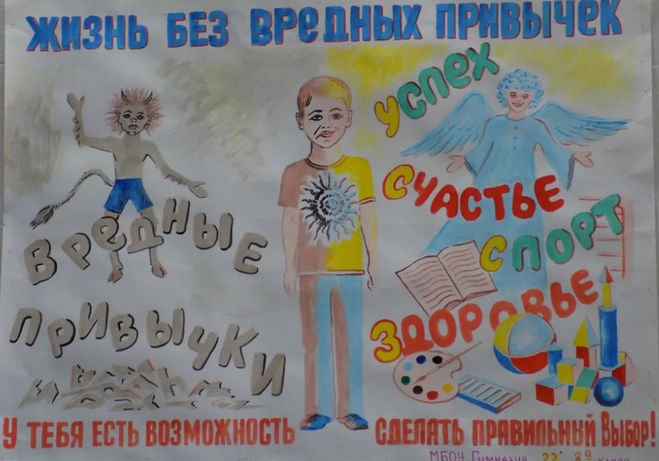 ЖИЗНЬ БЕЗ ВРЕДНЫХ ПРИВЫЧЕК
ВРЕДНЫЕ
ПРИВЫЧКИ
УСПЕХ
СЧАСТЬЕ
СПОРТ
ЗДОРОВЬЕ
У ТЕБЯ ЕСТЬ ВОЗМОЖНОСТЬ СДЕЛАТЬ ПРАВИЛЬНЫЙ ВЫБОР!
МБОУ Гимназия 22 8а класс